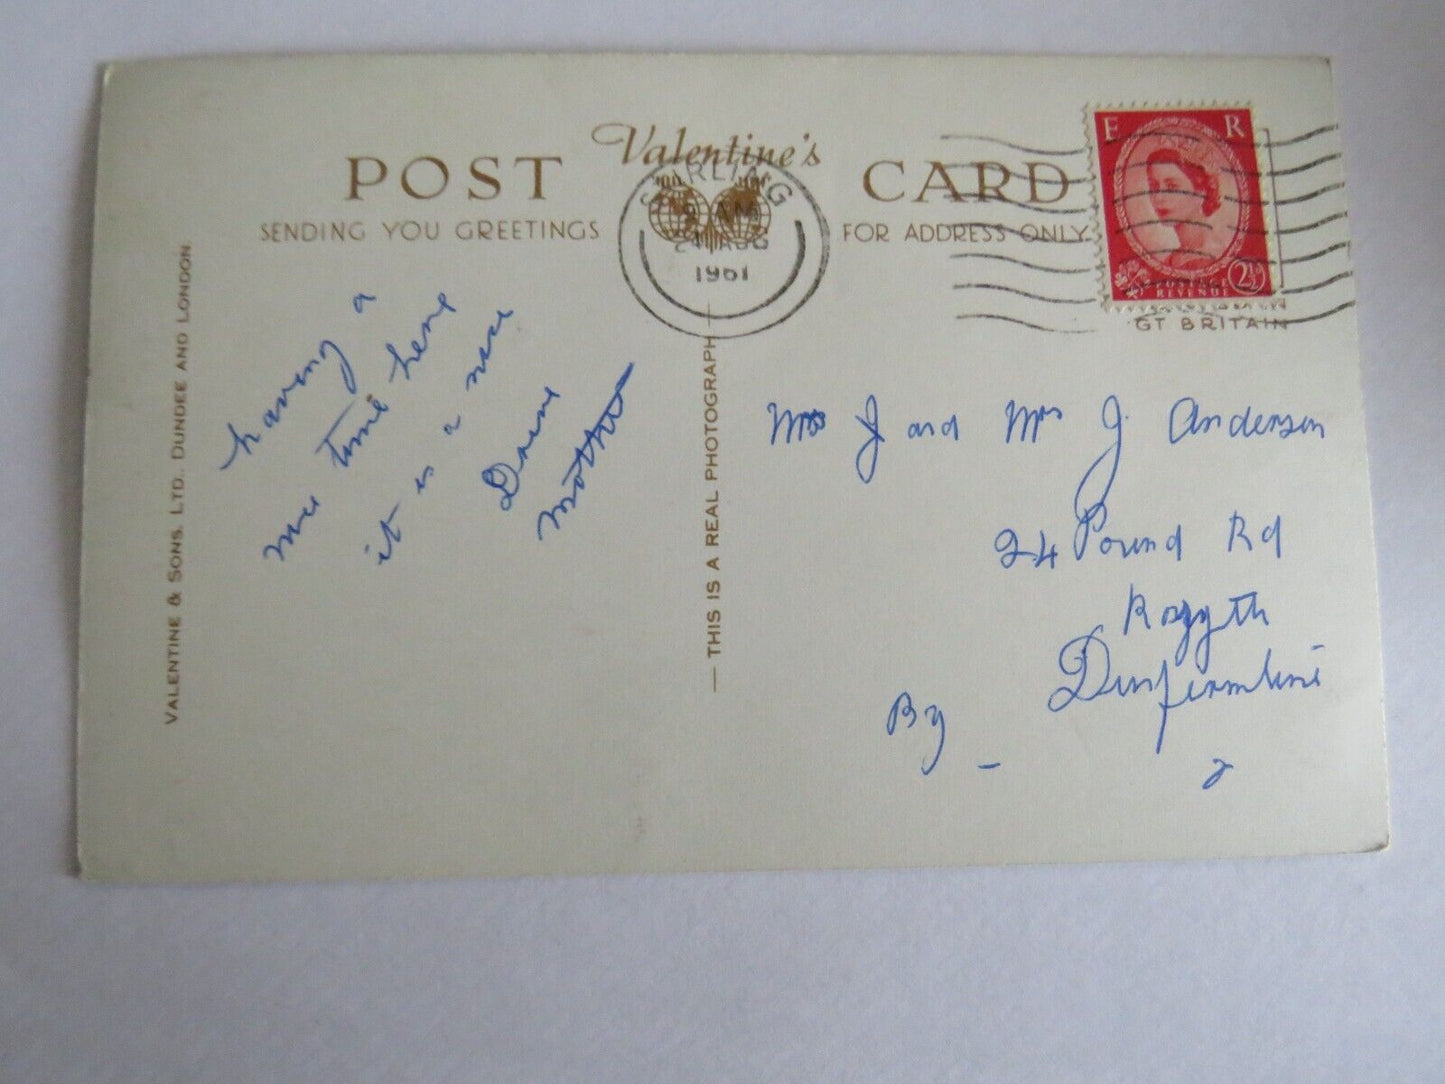 POST Valentine's CARD
SENDING YOU GREETINGS FOR ADDRESS ONLY
STIRLING
AM
AUG
1961
E R
POSTAGE
REVENUE
2½
GT BRITAIN
VALENTINE & SONS. LTD. DUNDEE AND LONDON.
THIS IS A REAL PHOTOGRAPH
having a
time here
it is a
Mother
J and Mrs J. Anderson
24 Pound Rd
Rosyyth
Dunfermline
By